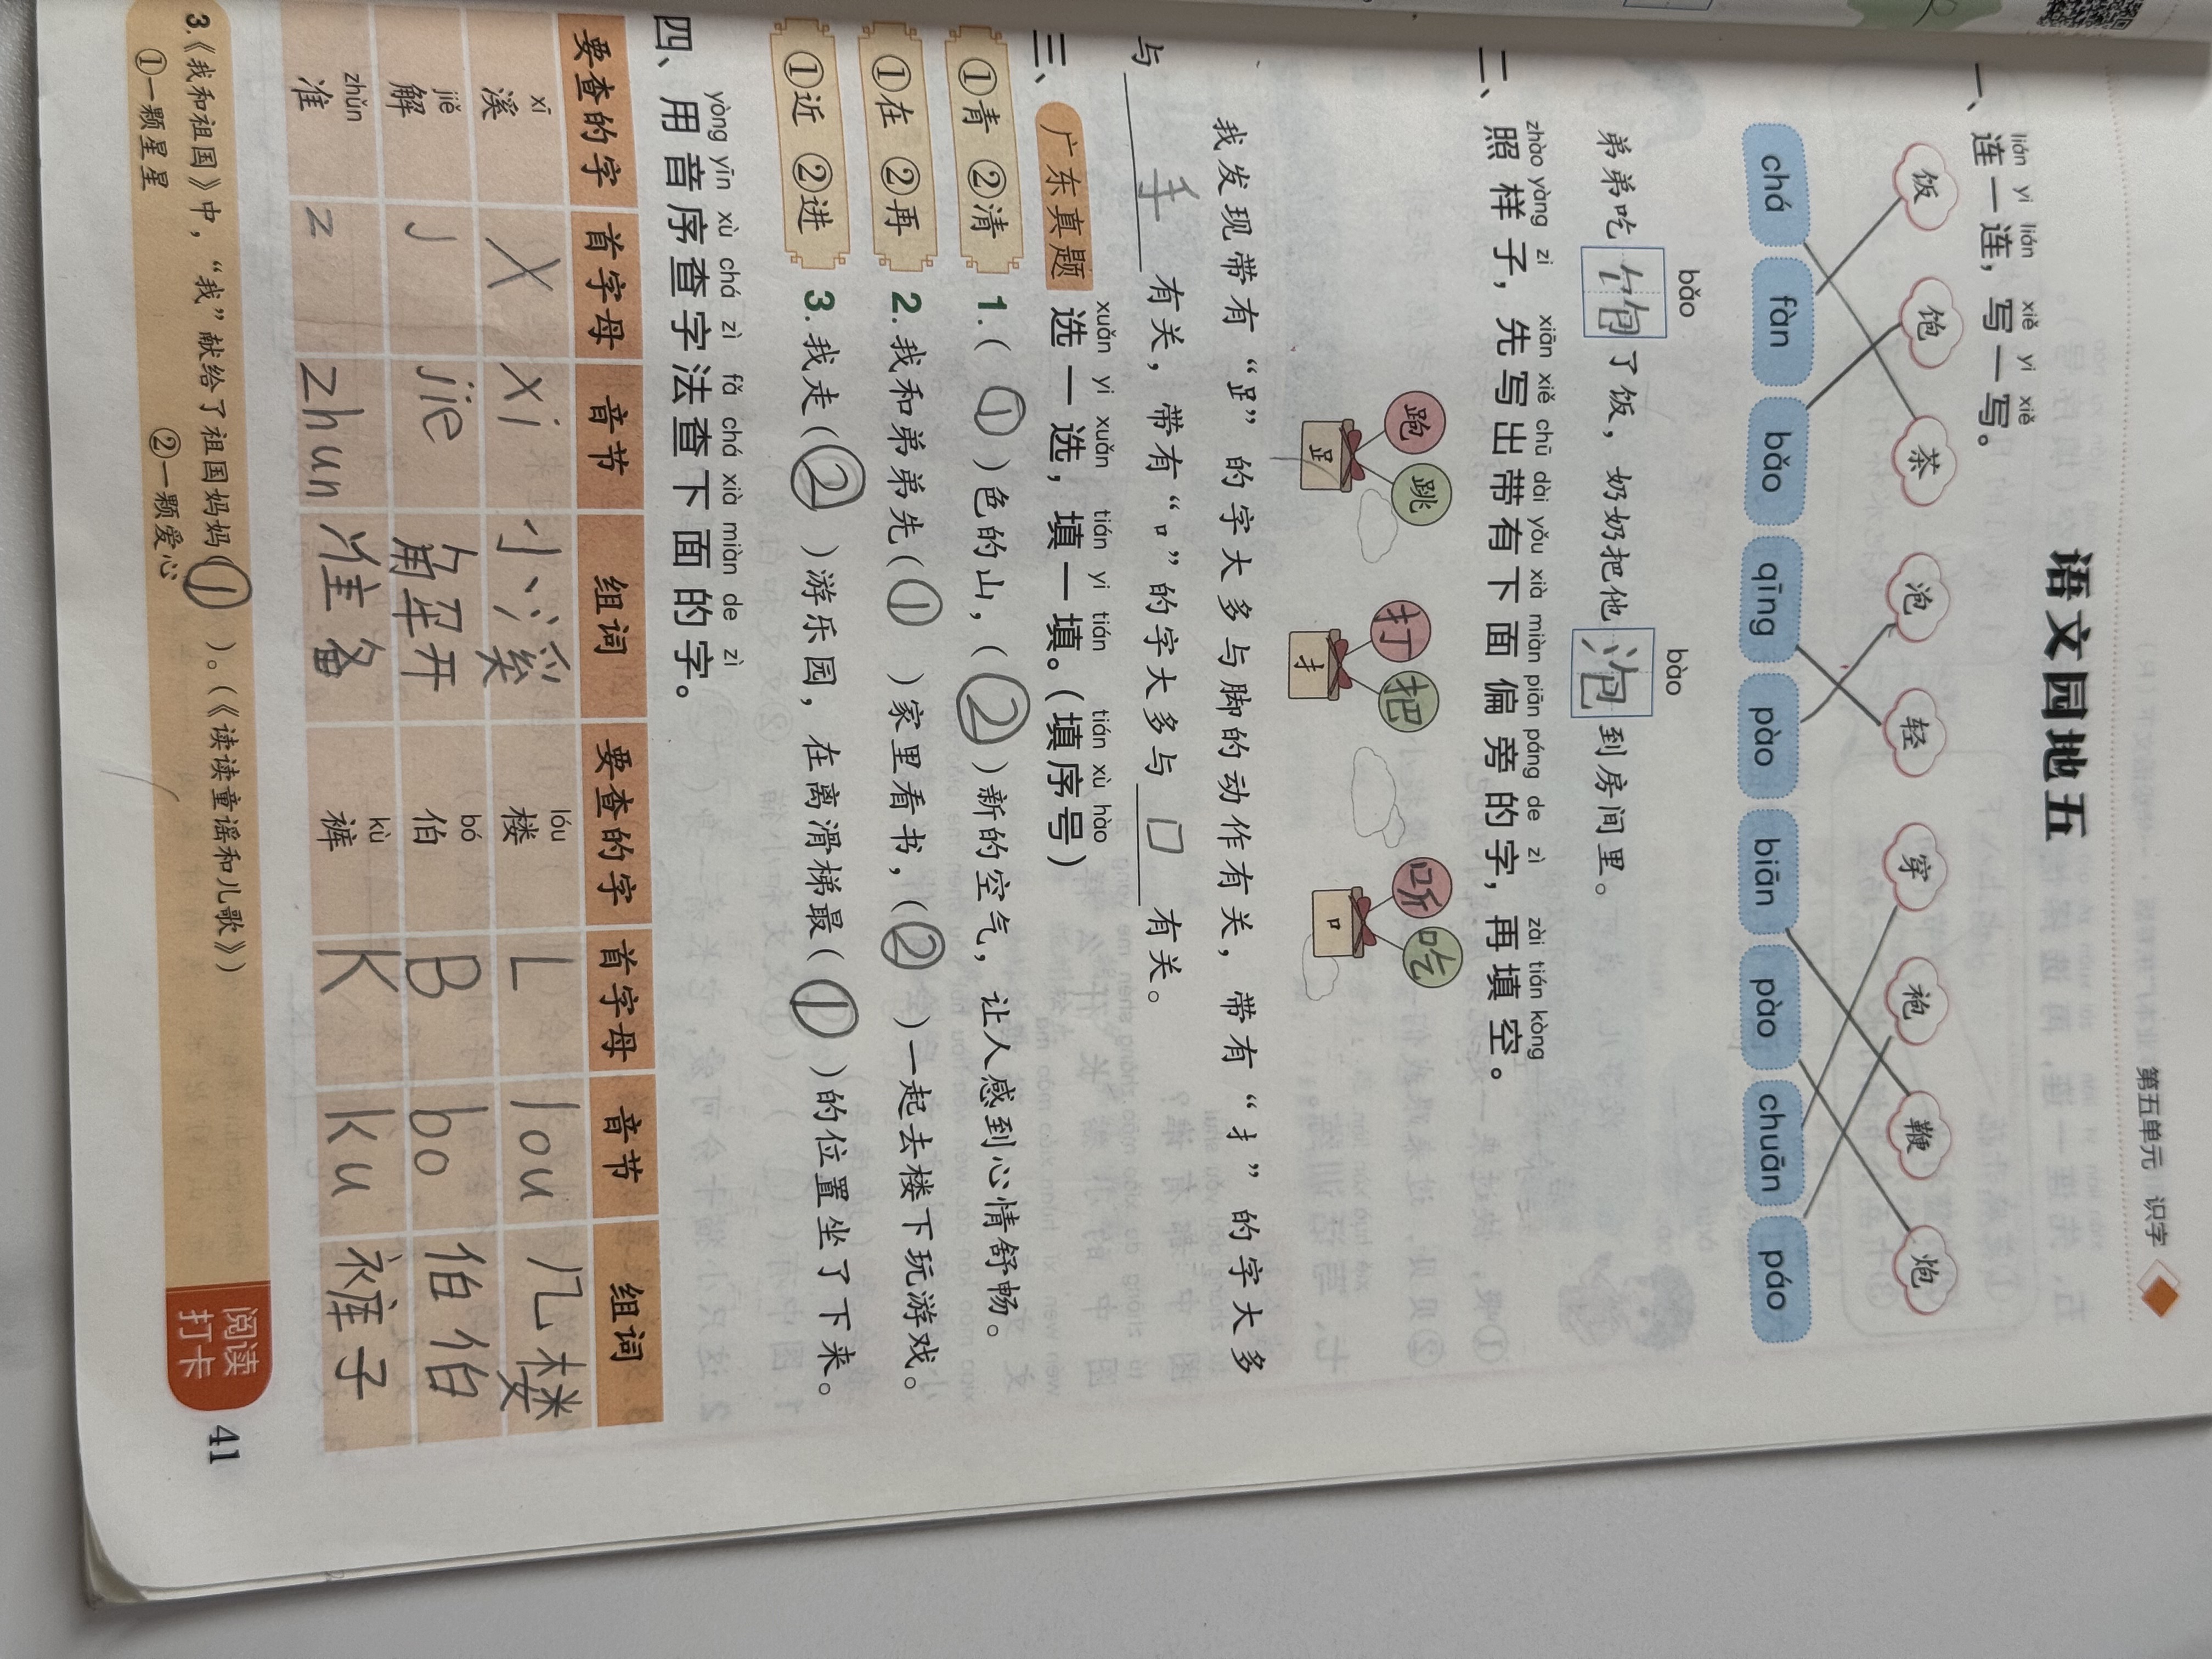 第五单元 识字
语文园地五
lián yi lián xiě yi xiě
一、连一连，写一写。
饭 饱 茶 泡 轻 穿 袍 鞭 炮
chá fàn bǎo qīng pào biān pào chuān páo
bǎo bào
弟弟吃饱了饭，奶奶把他泡到房间里。
zhào yàng zi xiān xiě chū dài yǒu xià miàn piān páng de zì zài tián kòng
二、照样子，先写出带有下面偏旁的字，再填空。
跑 跳 打 把 听 吃
𧾷 扌 口
我发现带有“𧾷”的字大多与脚的动作有关，带有“扌”的字大多
与手有关，带有“口”的字大多与口有关。
xuǎn yi xuǎn tián yi tián tián xù hào
三、广东真题 选一选，填一填。（填序号）
①青 ②清 1.（①）色的山，（②）新的空气，让人感到心情舒畅。
①在 ②再 2.我和弟弟先（①）家里看书，（②）一起去楼下玩游戏。
①近 ②进 3.我走（②）游乐园，在离滑梯最（①）的位置坐了下来。
yòng yīn xù chá zì fǎ chá xià miàn de zì
四、用音序查字法查下面的字。
要查的字 首字母 音节 组词 要查的字 首字母 音节 组词
xī lóu
溪 X xi 小溪 楼 L lou 几楼
jiě bó
解 J jie 解开 伯 B bo 伯伯
zhǔn kù
准 z zhun 准备 裤 K ku 裤子
3.《我和祖国》中，“我”献给了祖国妈妈（①）。（《读读童谣和儿歌》）
①一颗星星 ②一颗爱心
阅读
打卡
41